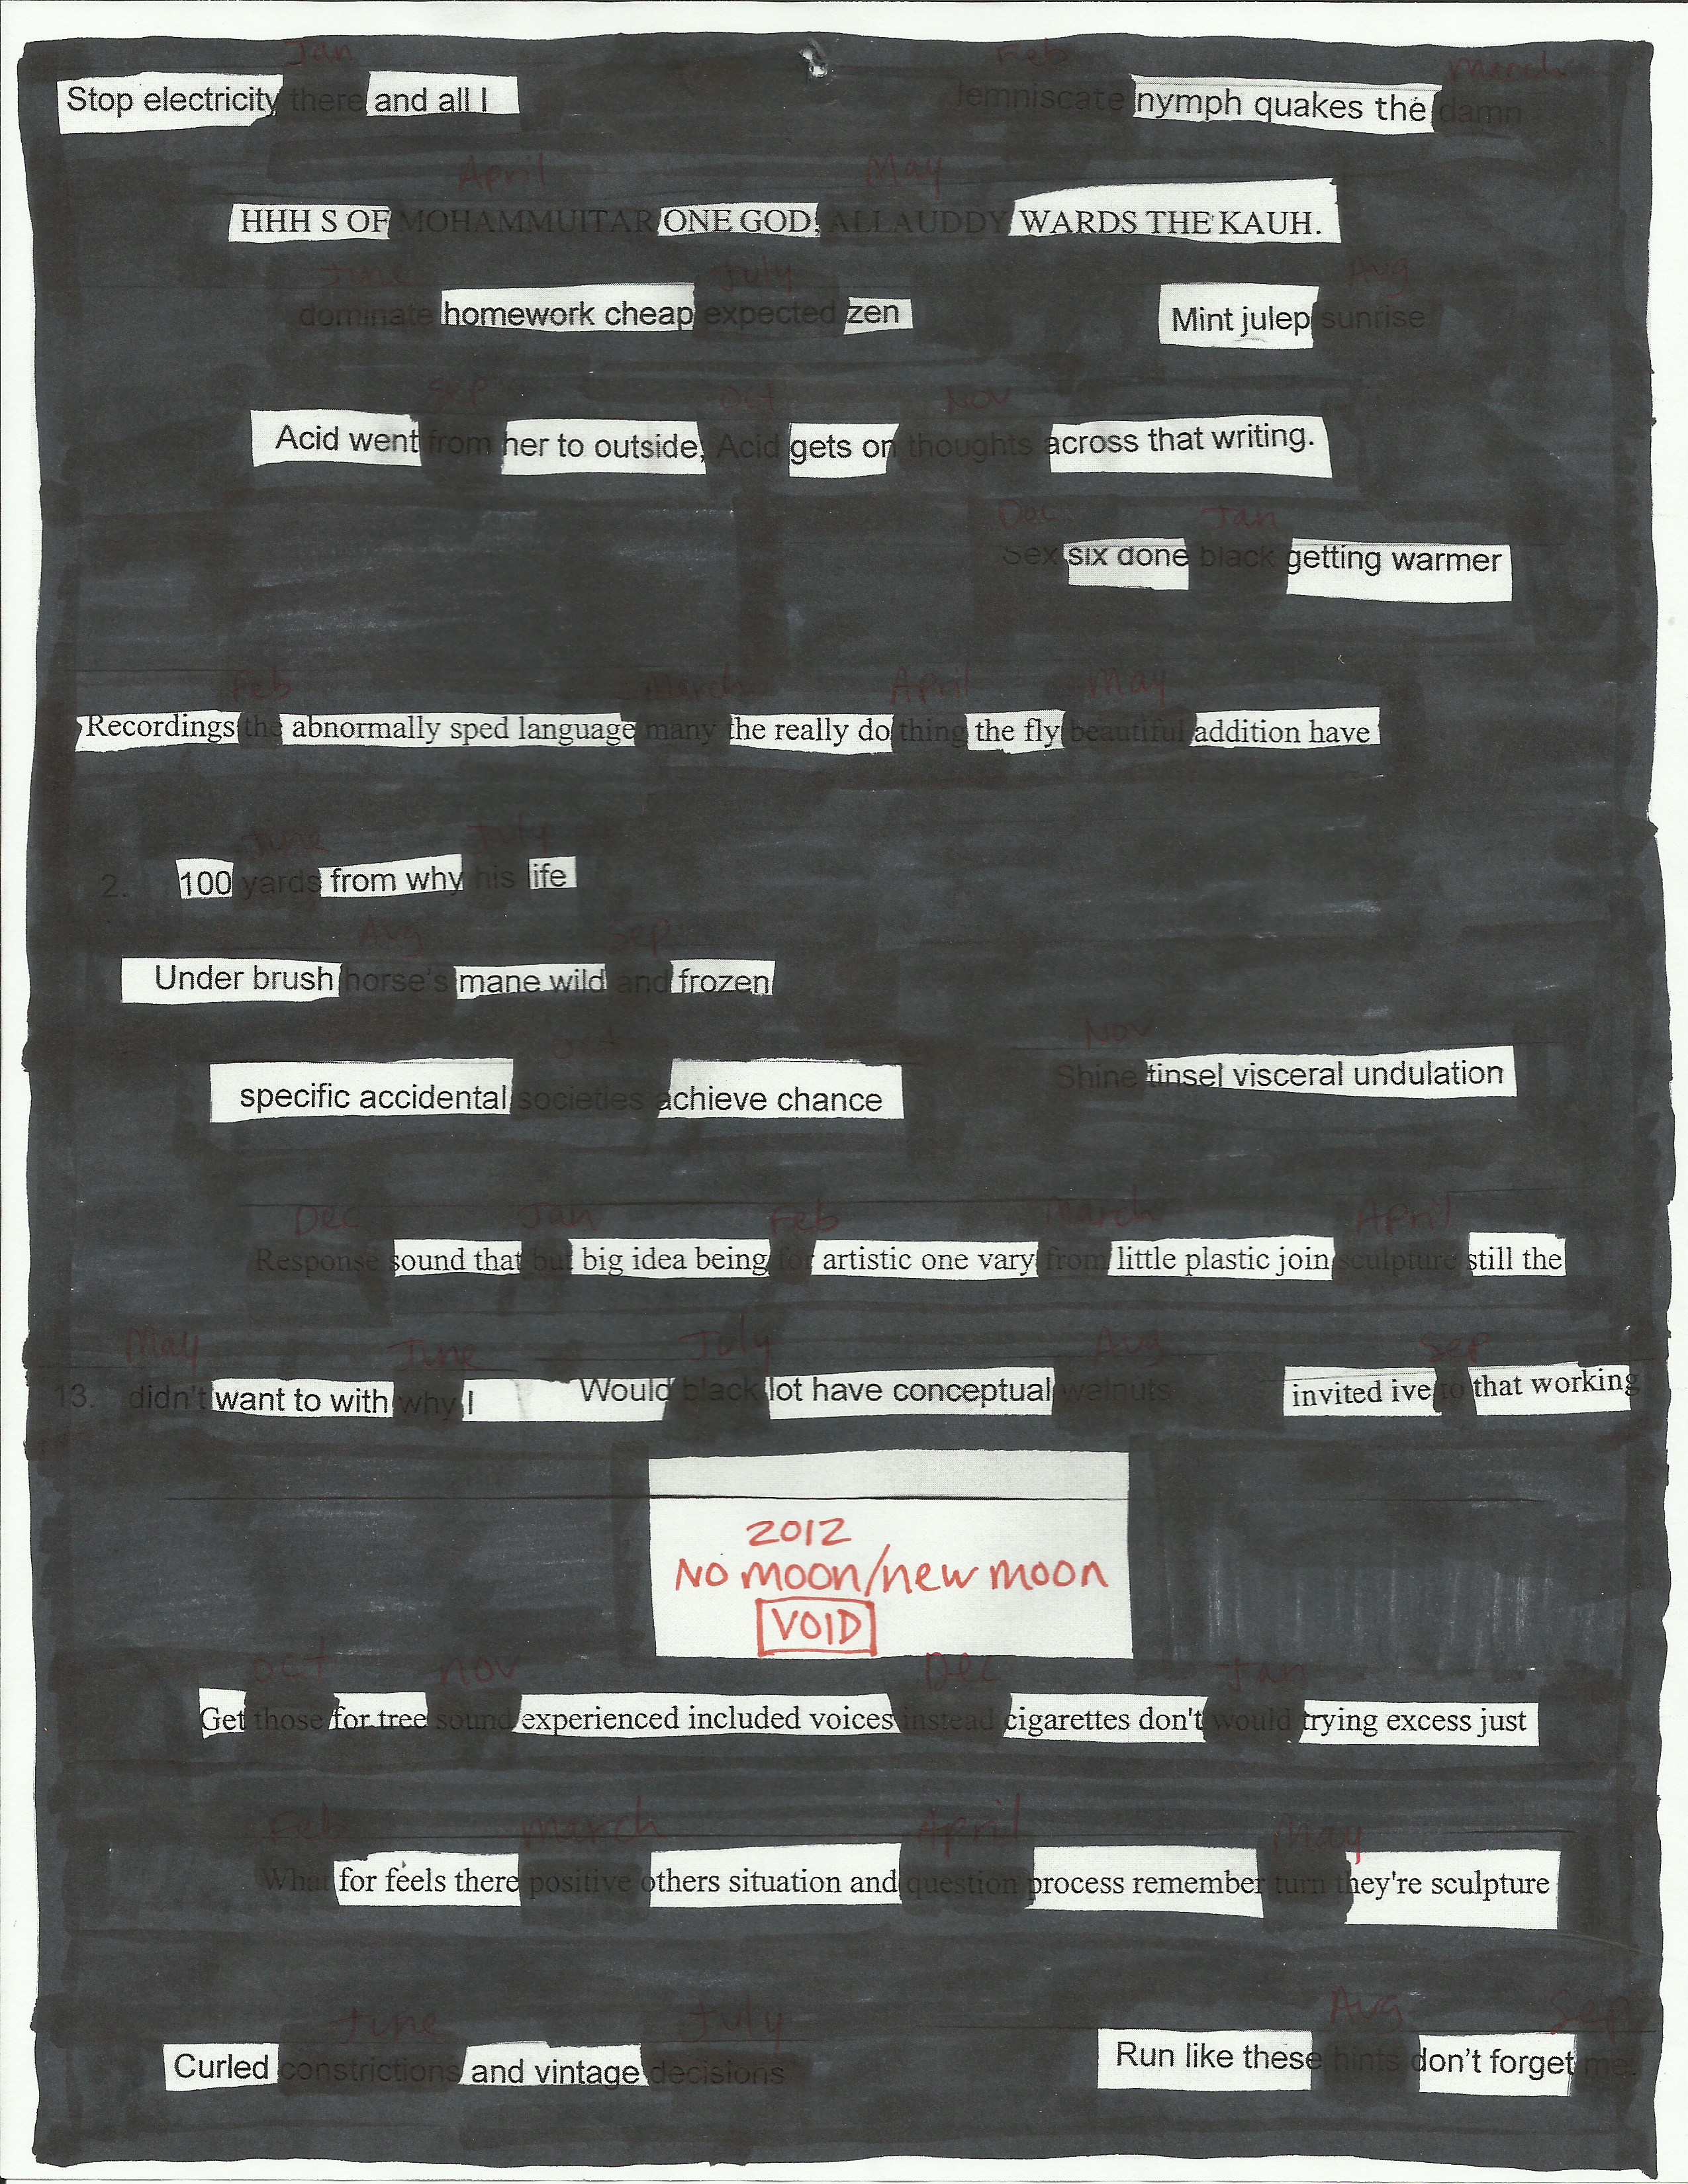 Jan Feb March
Stop electricity there and all I lemniscate nymph quakes the damn
April May
HHH S OF MOHAMMUITAR ONE GOD; ALLAUDDY WARDS THE KAUH.
June July Aug
dominate homework cheap expected zen Mint julep sunrise
Sep Oct Nov
Acid went from her to outside, Acid gets on thoughts across that writing.
Dec Jan
Sex six done black getting warmer
Feb March April May
Recordings the abnormally sped language many the really do thing the fly beautiful addition have
June July
2. 100 yards from why his life
Aug Sep
Under brush horse's mane wild and frozen
Oct Nov
specific accidental societies achieve chance Shine tinsel visceral undulation
Dec Jan Feb March April
Response sound that but big idea being for artistic one vary from little plastic join sculpture still the
May June July Aug Sep
13. didn't want to with why I Would black lot have conceptual walnuts invited ive to that working
2012
No moon/new moon
VOID
Oct Nov Dec Jan
Get those for tree sound experienced included voices instead cigarettes don't would trying excess just
Feb March April May
What for feels there positive others situation and question process remember turn they're sculpture
June July Aug Sep
Curled constrictions and vintage decisions Run like these hints don't forget me.